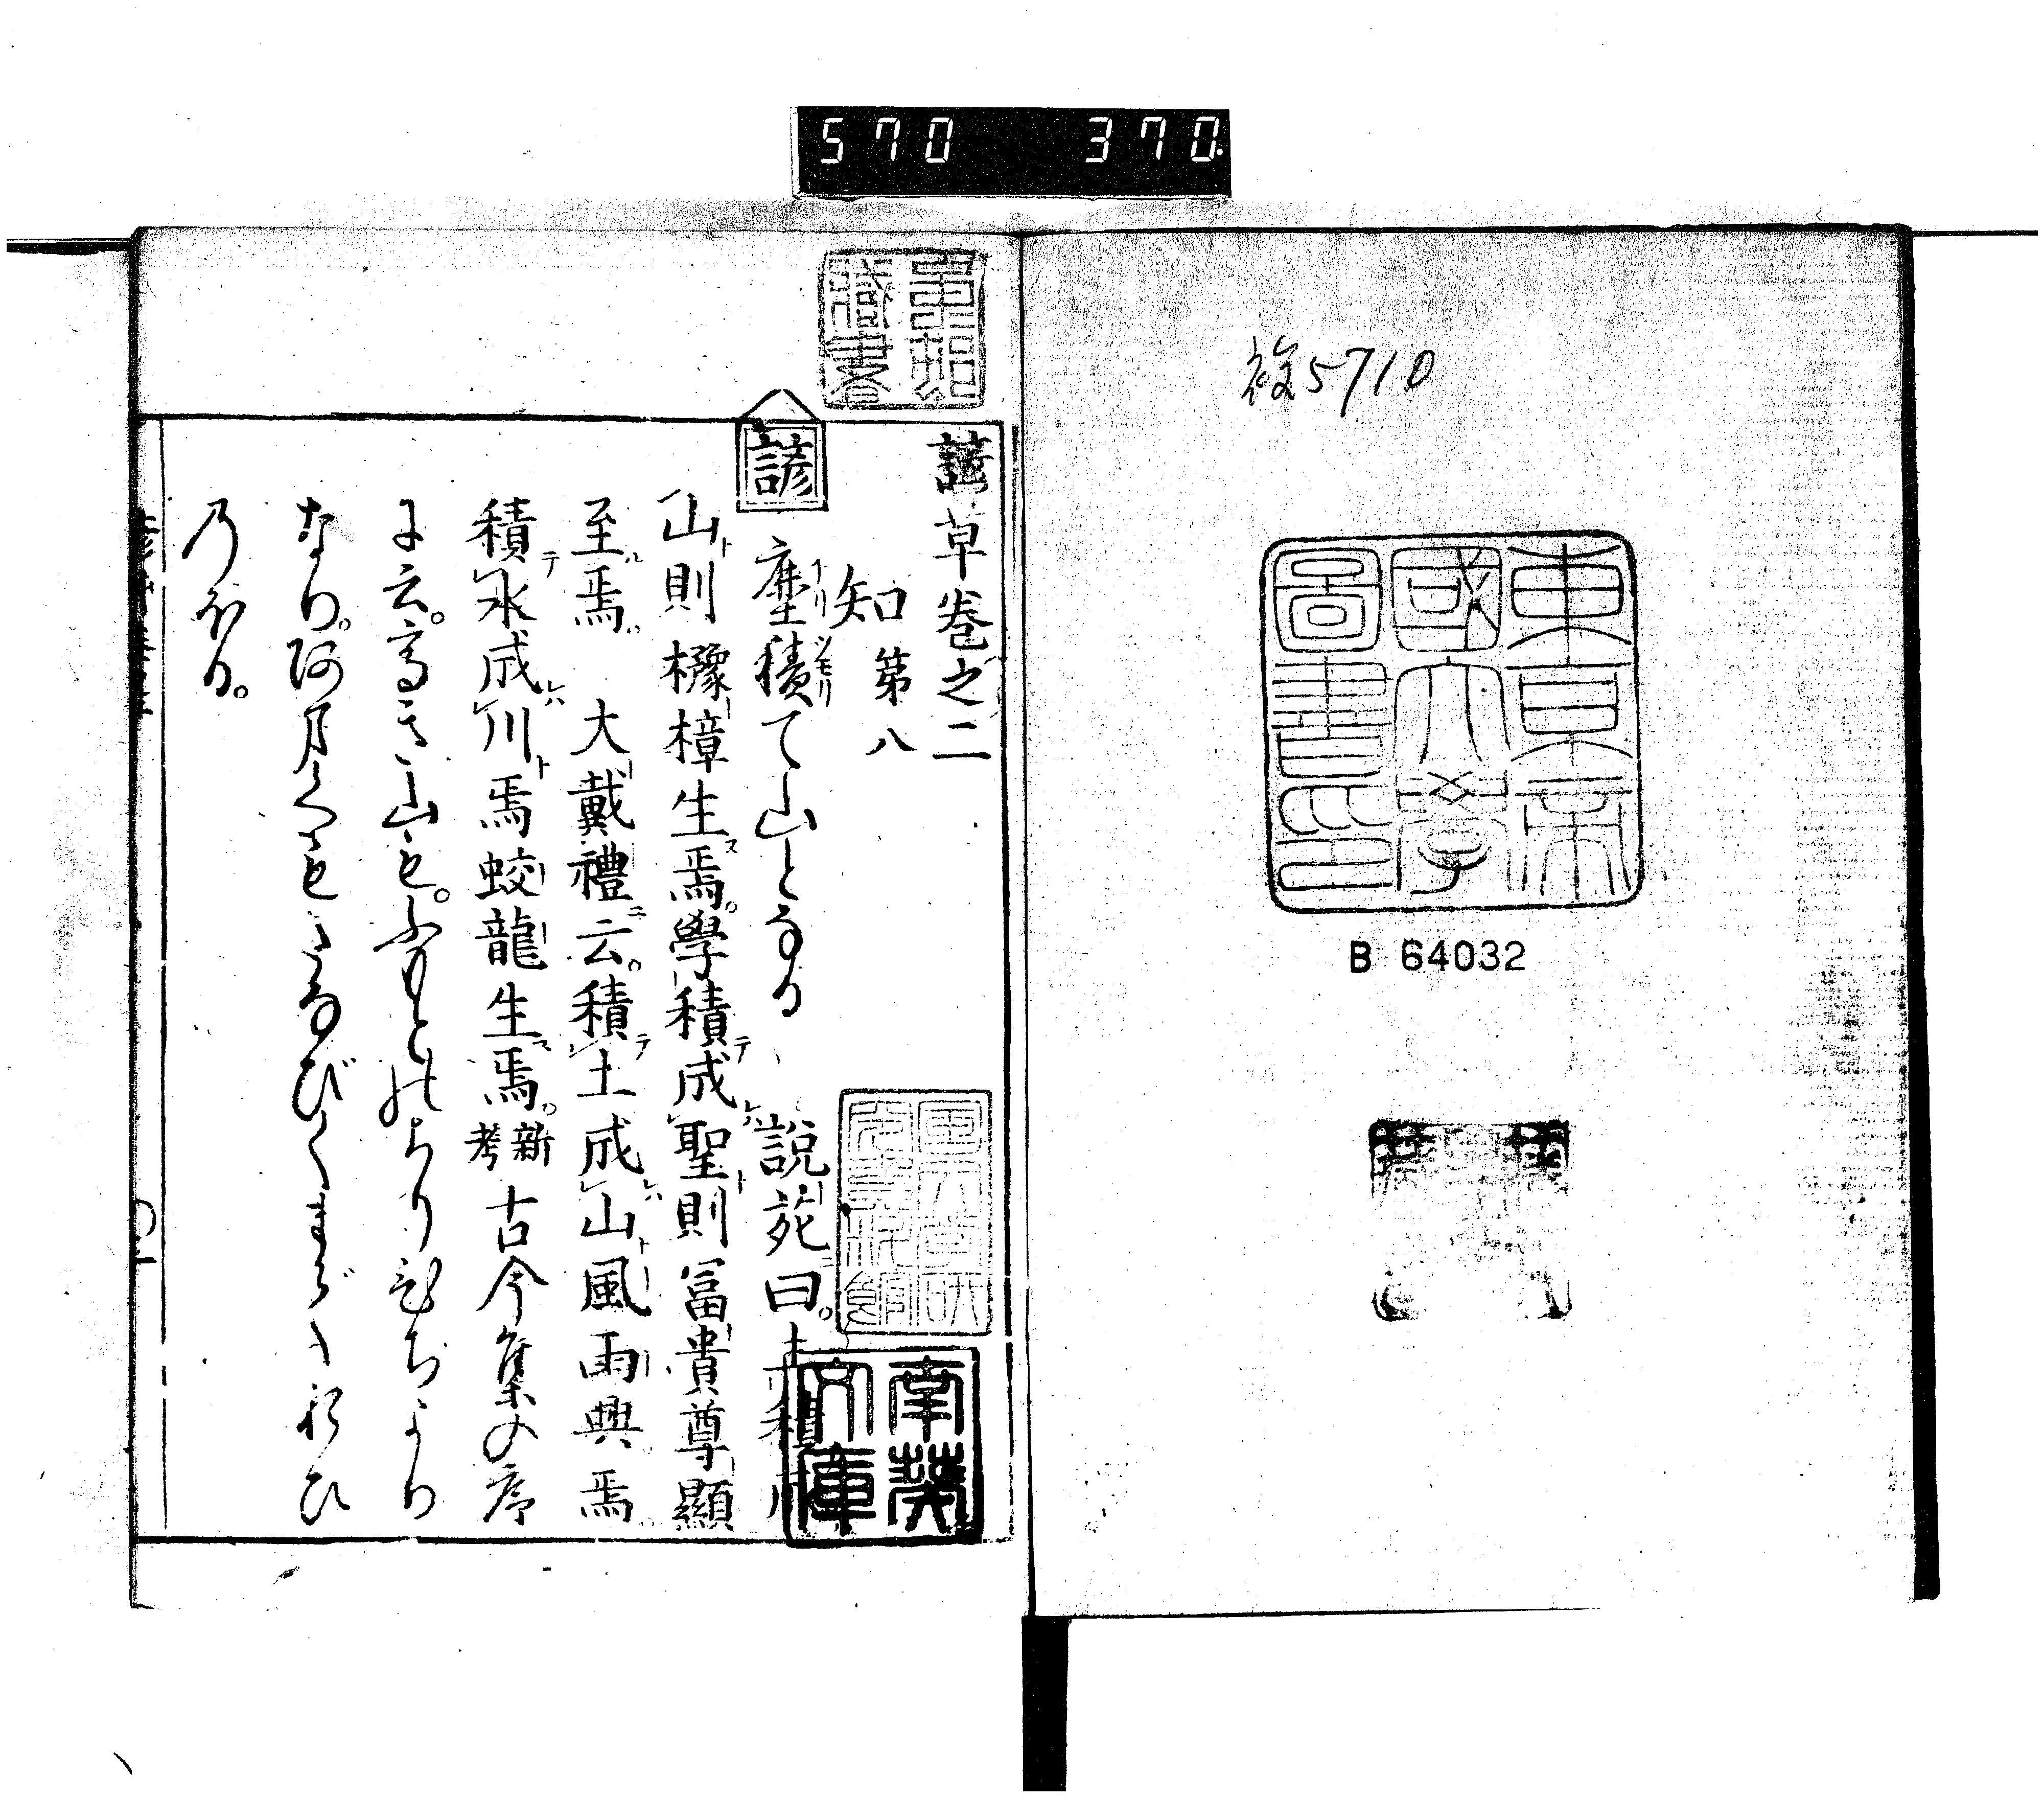 570 370.
複5710
東京帝
國大學
圖書印
B 64032
藏書
南葵
文庫
諺草巻之二
知第八
諺 塵積て山となる 說苑曰。土積成
山則櫲樟生焉。學積成聖則冨貴尊顯
至焉 大戴禮云。積土成山風雨興焉
積水成川焉蛟龍生焉。新考 古今集の序
に云。高き山も。ふもとのちりひぢより
なり。阿まくもたなびくまでおひ
乃ぼる。